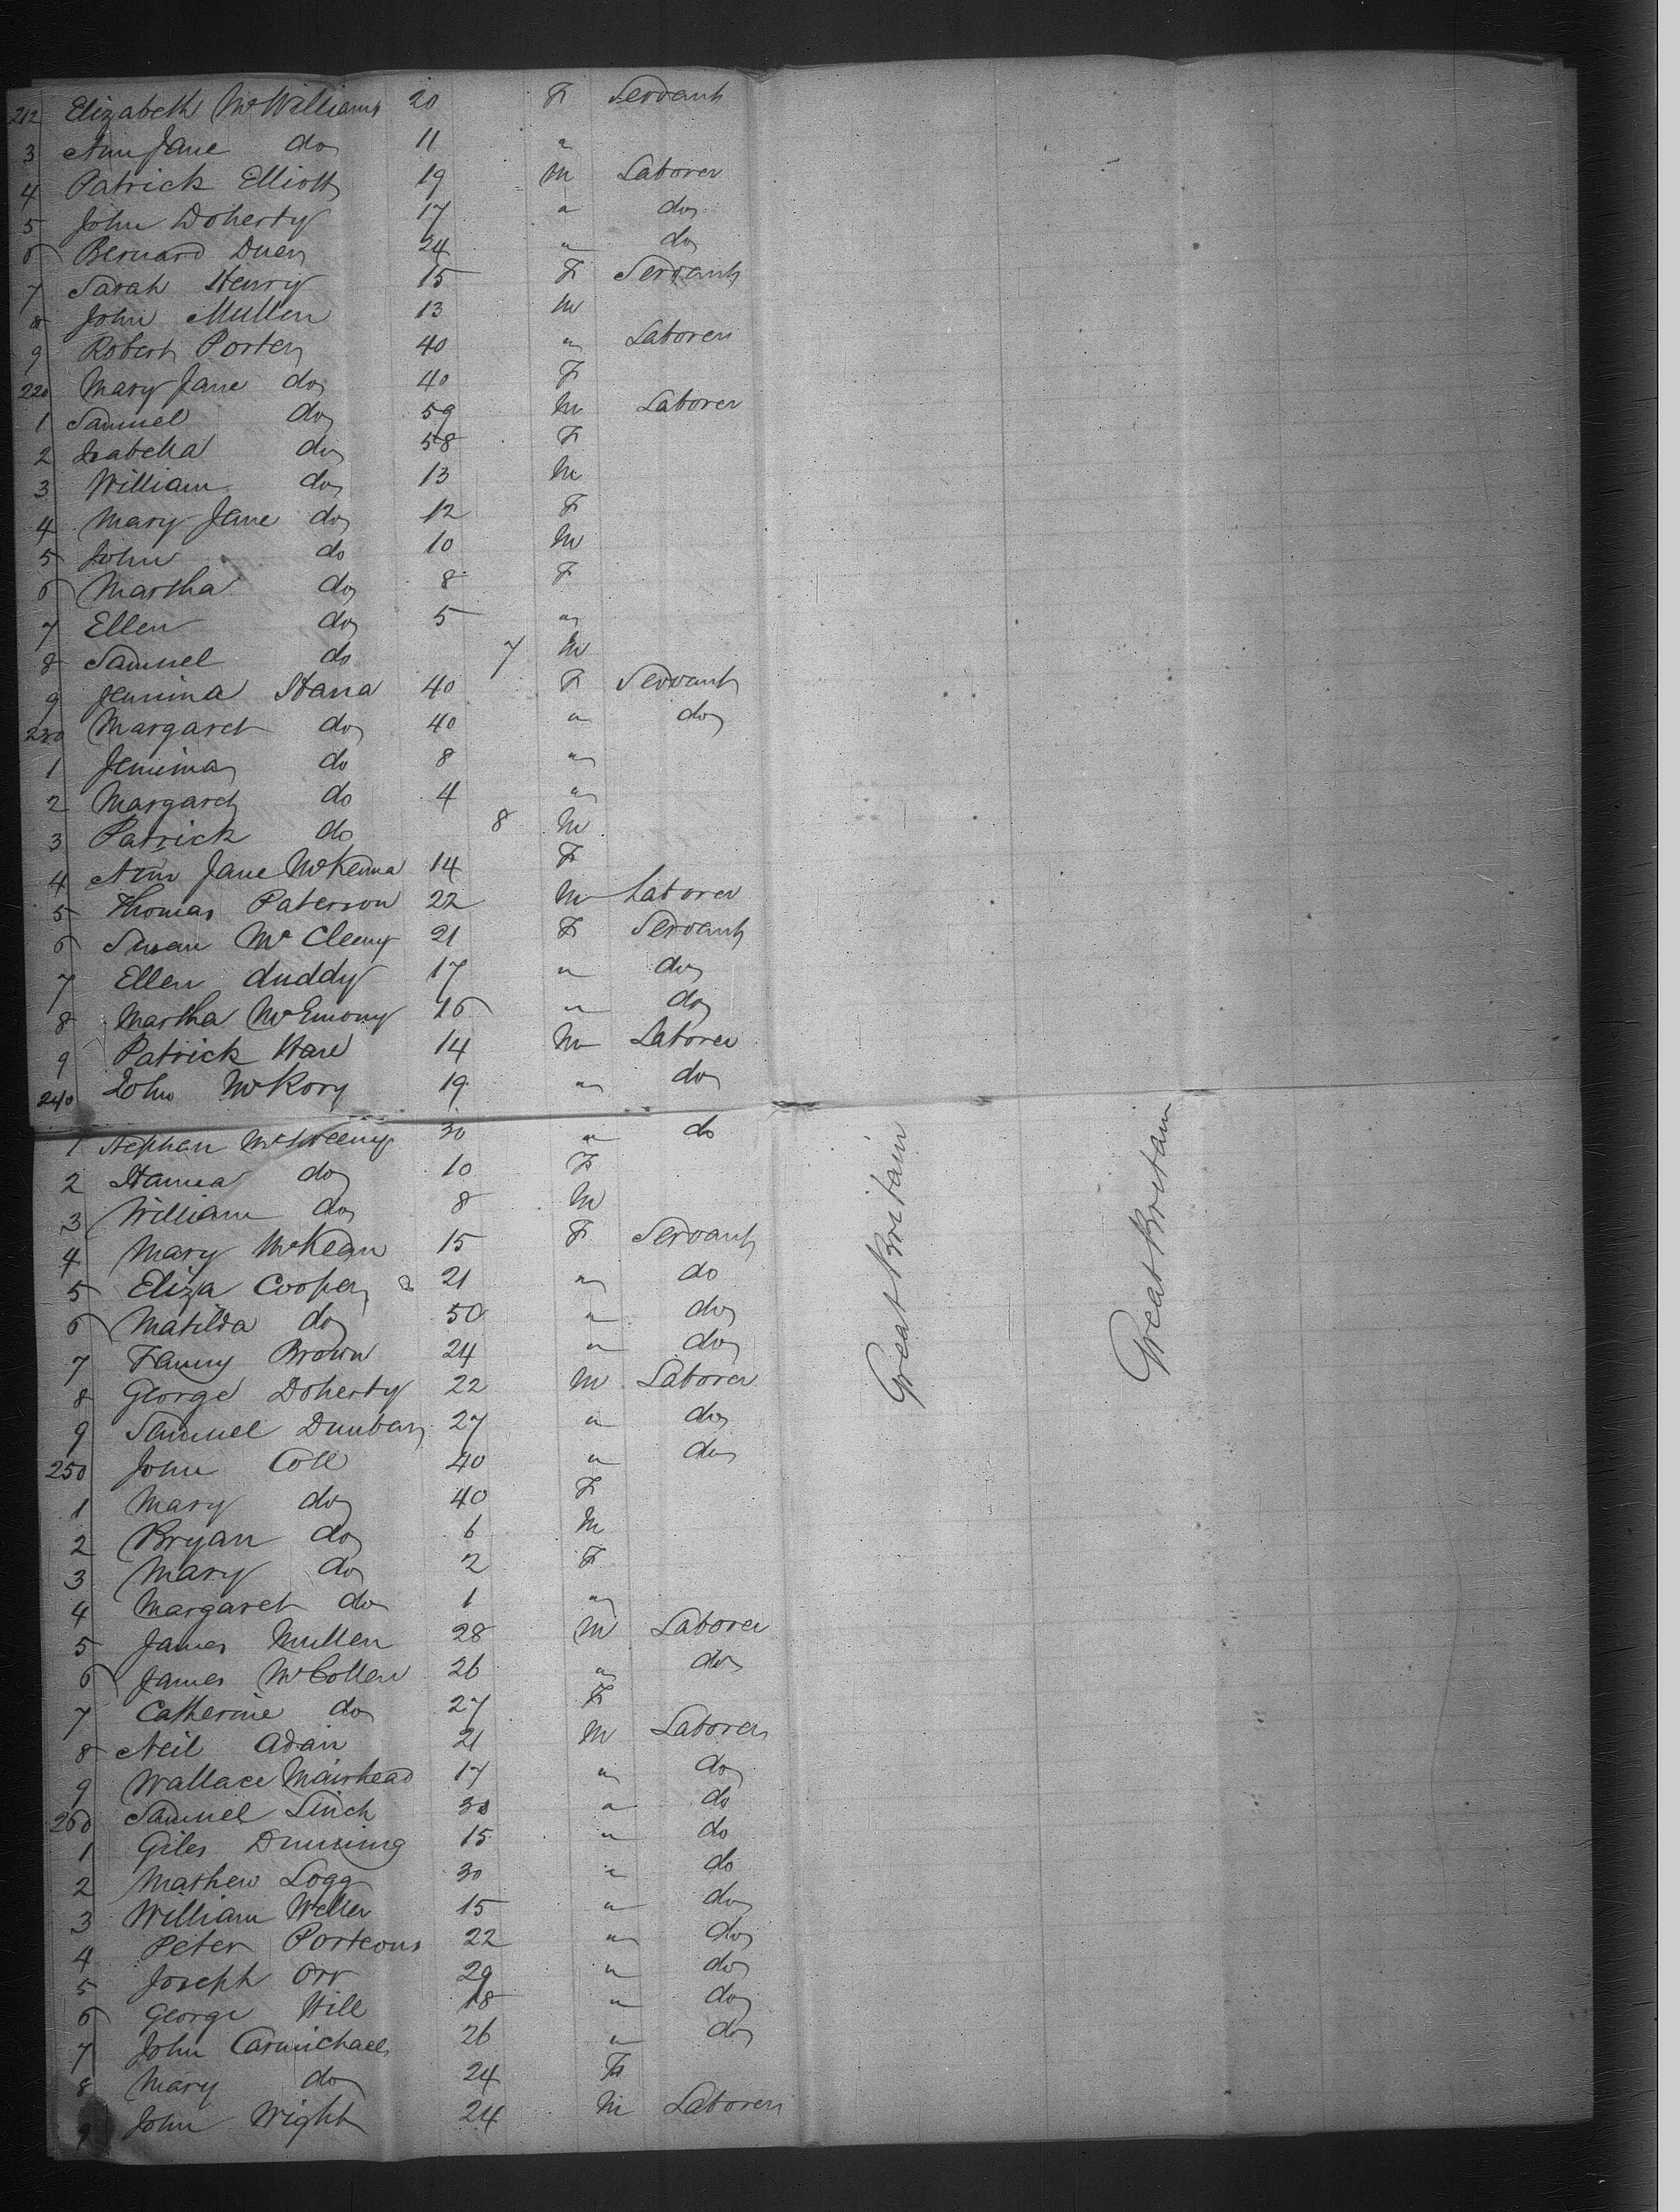 212 Elizabeth McWilliams 20 F Servant
3 Ann Jane do 11 "
4 Patrick Elliott 19 M Laborer
5 John Doherty 17 " do
6 Bernard Duen 24 " do
7 Sarah Henry 15 F Servant
8 John Mullen 13 M
9 Robert Porter 40 " Laborer
220 Mary Jane do 40 F
1 Samuel do 59 M Laborer
2 Isabella do 58 F
3 William do 13 M
4 Mary Jane do 12 F
5 John do 10 M
6 Martha do 8 F
7 Ellen do 5 "
8 Samuel do 7 M
9 Jemima Hana 40 F Servant
230 Margaret do 40 " do
1 Jemima do 8 "
2 Margaret do 4 "
3 Patrick do 8 M
4 Ann Jane McKenna 14 F
5 Thomas Paterson 22 M Laborer
6 Susan McCleeny 21 F Servant
7 Ellen duddy 17 " do
8 Martha McEmony 16 " do
9 Patrick Hare 14 M Laborer
240 John McRory 19 " do
1 Stephen 30 " do
2 Hanna do 10 F
3 William do 8 M
4 Mary McKean 15 F Servant
5 Eliza Cooper 21 " do
6 Matilda do 50 " do
7 Fanny Brown 24 " do
8 George Doherty 22 M Laborer
9 Samuel Dunbar 27 " do
250 John Coll 40 " do
1 Mary do 40 F
2 Bryan do 6 M
3 Mary do 2 F
4 Margaret do 1 "
5 James Mullen 28 M Laborer
6 James McCollen 26 " do
7 Catherine do 27 F
8 Neil Adair 21 M Laborer
9 Wallace Mairhead 17 " do
260 Samuel Linch 30 " do
1 Giles Dunning 15 " do
2 Mathew Logg 30 " do
3 William Weller 15 " do
4 Peter Porteous 22 " do
5 Joseph Orr 29 " do
6 George Hill 18 " do
7 John Carmichael 26 " do
8 Mary do 24 F
9 John Wright 24 M Laborer
Great Britain
Great Britain